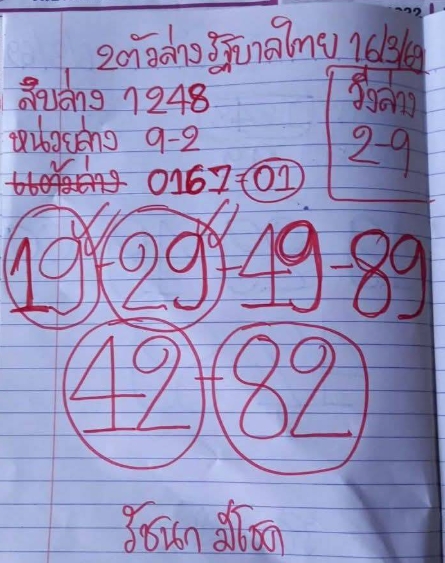 2ตัวล่างรัฐบาลไทย 16/3/69
สิบล่าง 1248
หน่วยล่าง 9-2
แต้มล่าง 0167-01
วิ่งล่าง
2-9
19-29-49-89
42-82
รัชนก มีโชค